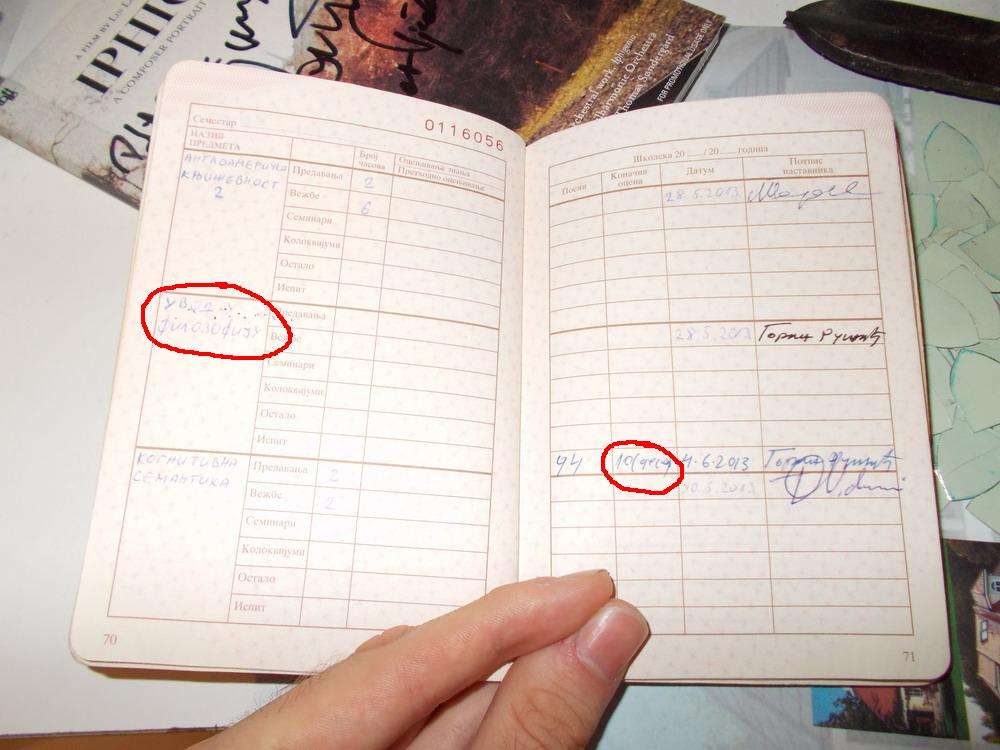 A FILM BY
IPHIG
A COMPOSER PORTRAIT
orchestral work Iphigenia
Philharmonic Orchestra
Thomas Søndergård
FOR PROMOTIONAL USE ONLY
Семестар
0116056
НАЗИВ ПРЕДМЕТА
Број часова
Оцењивање знања
Претходно оцењивање
АНГЛОАМЕРИЧКА
КЊИЖЕВНОСТ
2
Предавања 2
Вежбе 6
Семинари
Колоквијуми
Остало
Испит
УВОД У
ФИЛОЗОФИЈУ
Предавања
Вежбе
Семинари
Колоквијуми
Остало
Испит
КОГНИТИВНА
СЕМАНТИКА
Предавања 2
Вежбе 2
Семинари
Колоквијуми
Остало
Испит
70
Школска 20 / 20 година
Поени
Коначна оцена
Датум
Потпис наставника
28.5.2013.
28.5.2013.
94 10 4.6.2013
30.5.2013.
71